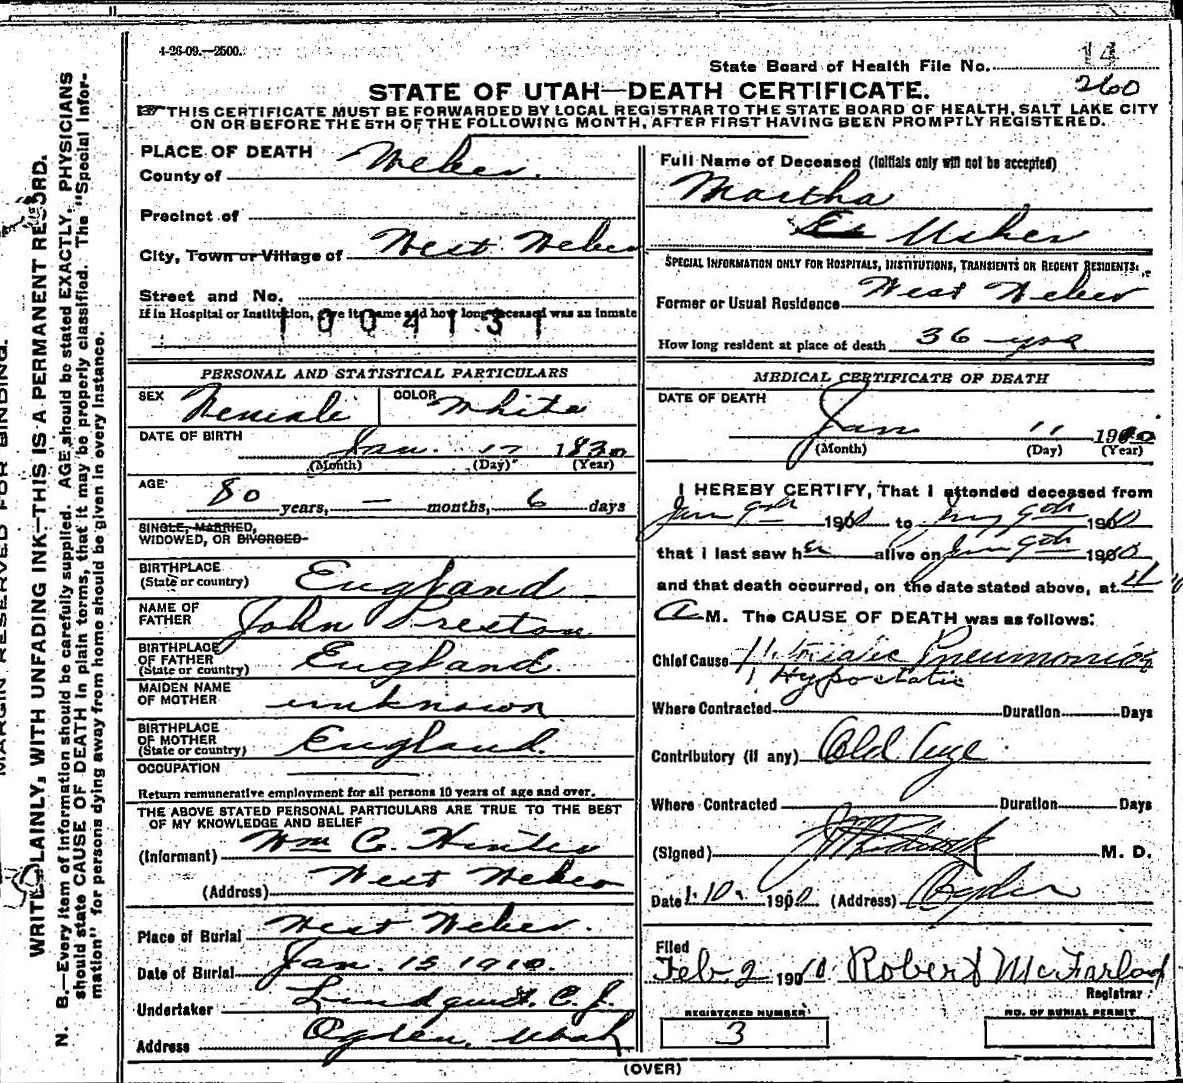 4-26-09.—2500.
14
State Board of Health File No.
260
STATE OF UTAH—DEATH CERTIFICATE.
THIS CERTIFICATE MUST BE FORWARDED BY LOCAL REGISTRAR TO THE STATE BOARD OF HEALTH, SALT LAKE CITY
ON OR BEFORE THE 5TH OF THE FOLLOWING MONTH, AFTER FIRST HAVING BEEN PROMPTLY REGISTERED.
PLACE OF DEATH
County of Weber.
Precinct of
City, Town or Village of West Weber
Street and No.
If in Hospital or Institution, give its name and how long deceased was an inmate
1004131
PERSONAL AND STATISTICAL PARTICULARS
SEX Female COLOR White
DATE OF BIRTH
Jan. 17 1830
(Month) (Day) (Year)
AGE
80 years, — months, 6 days
SINGLE, MARRIED,
WIDOWED, OR DIVORCED
BIRTHPLACE
(State or country) England
NAME OF
FATHER John Preston
BIRTHPLACE
OF FATHER
(State or country) England.
MAIDEN NAME
OF MOTHER unknown
BIRTHPLACE
OF MOTHER
(State or country) England.
OCCUPATION
Return remunerative employment for all persons 10 years of age and over.
THE ABOVE STATED PERSONAL PARTICULARS ARE TRUE TO THE BEST
OF MY KNOWLEDGE AND BELIEF
(Informant) Wm C. Hunter
(Address) West Weber
Place of Burial West Weber.
Date of Burial Jan. 15 1910.
Undertaker Lindquist. C. J.
Address Ogden, Utah
Full Name of Deceased (Initials only will not be accepted)
Martha
Es Usher
SPECIAL INFORMATION ONLY FOR HOSPITALS, INSTITUTIONS, TRANSIENTS OR RECENT RESIDENTS:
Former or Usual Residence West Weber
How long resident at place of death 36 yrs
MEDICAL CERTIFICATE OF DEATH
DATE OF DEATH
Jan 11 1910
(Month) (Day) (Year)
I HEREBY CERTIFY, That I attended deceased from
Jan 9th 1910 to Jany 9th 1910
that I last saw her alive on Jan 9th 1910
and that death occurred, on the date stated above, at 11
A M. The CAUSE OF DEATH was as follows:
Chief Cause Pneumonia
Hypostatic
Where Contracted Duration Days
Contributory (if any) Old Age
Where Contracted Duration Days
(Signed) M. D.
Date 1-10 1910 (Address) Ogden
Filed
Feb 2 1910 Robert McFarland
Registrar
REGISTERED NUMBER
3
NO. OF BURIAL PERMIT
(OVER)
MARGIN RESERVED FOR BINDING.
WRITE PLAINLY, WITH UNFADING INK—THIS IS A PERMANENT RECORD.
N. B.—Every item of information should be carefully supplied. AGE should be stated EXACTLY. PHYSICIANS
should state CAUSE OF DEATH in plain terms, that it may be properly classified. The "Special Infor-
mation" for persons dying away from home should be given in every instance.